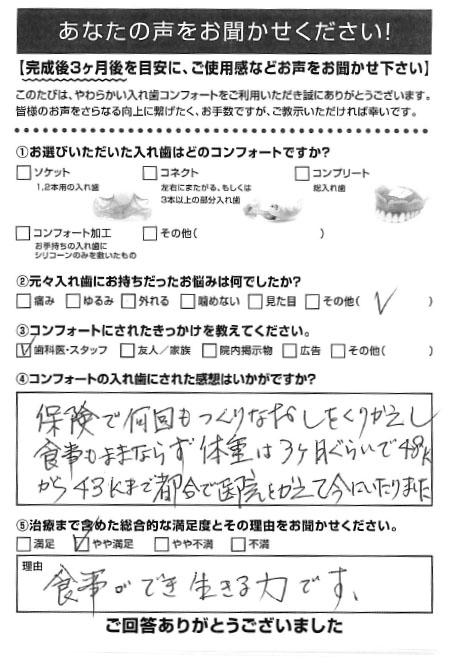 あなたの声をお聞かせください!
【完成後3ヶ月後を目安に、ご使用感などお声をお聞かせ下さい】
このたびは、やわらかい入れ歯コンフォートをご利用いただき誠にありがとうございます。
皆様のお声をさらなる向上に繋げたく、お手数ですが、ご教示いただければ幸いです。
①お選びいただいた入れ歯はどのコンフォートですか?
□ソケット □コネクト □コンプリート
1,2本用の入れ歯 左右にまたがる、もしくは 総入れ歯
3本以上の部分入れ歯
□コンフォート加工 □その他( )
お手持ちの入れ歯に
シリコーンのみを敷いたもの
②元々入れ歯にお持ちだったお悩みは何でしたか?
□痛み □ゆるみ □外れる □噛めない □見た目 □その他( ✓ )
③コンフォートにされたきっかけを教えてください。
☑歯科医・スタッフ □友人/家族 □院内掲示物 □広告 □その他( )
④コンフォートの入れ歯にされた感想はいかがですか?
保険で何回もつくりなおしをくりかえし
食事もままならず体重は3ヶ月ぐらいで48K
から43Kまで都合で医院をかえて今にいたりました
⑤治療まで含めた総合的な満足度とその理由をお聞かせください。
□満足 ☑やや満足 □やや不満 □不満
理由
食事ができ生きる力です、
ご回答ありがとうございました